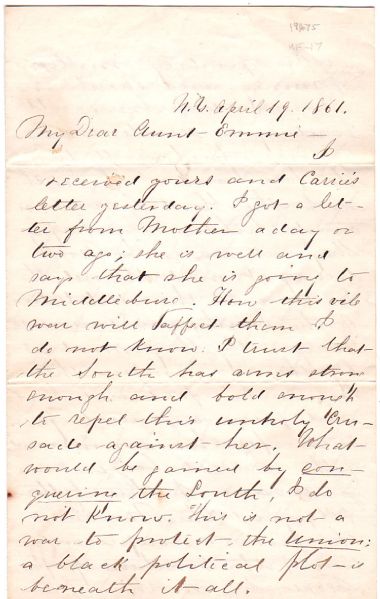 19675
WF-17
N.Y. April 19. 1861.
My Dear Aunt Emmie—
I
received yours and Carrie's
letter yesterday. I got a let-
ter from Mother a day or
two ago; she is well and
says that she is going to
Middleburg. How this vile
war will affect them I
do not know. I trust that
the South has arms strong
enough and bold enough
to repel this unholy "Cru-
sade against her. What
would be gained by con-
quering the South, I do
not know. This is not a
war to protect the Union:
a black political plot is
beneath it all.